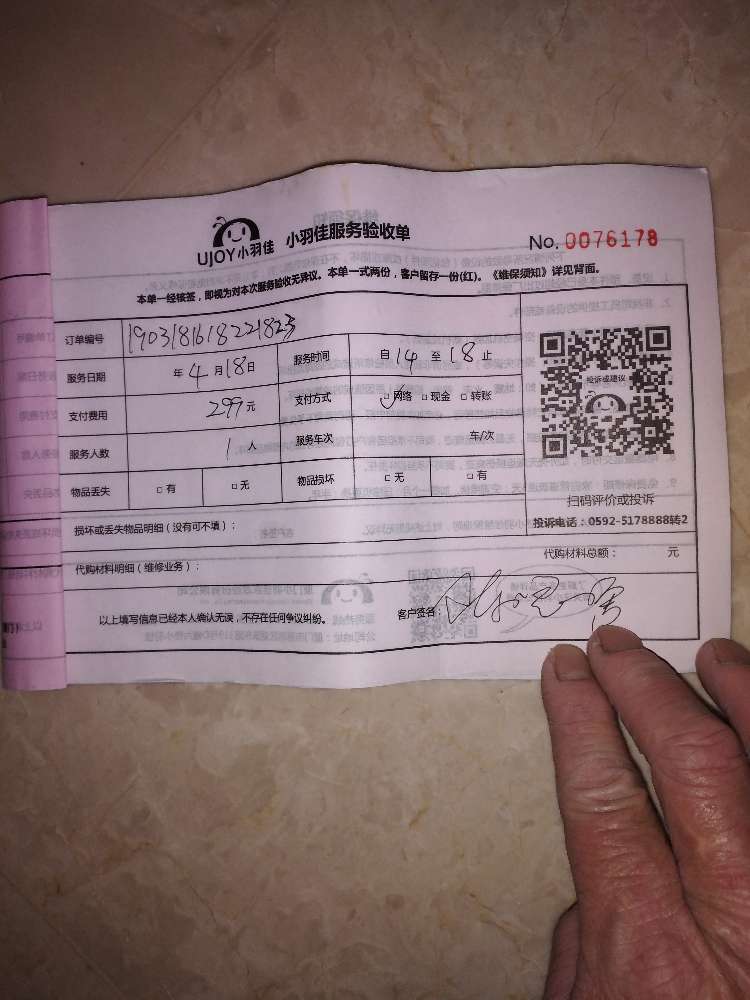 UJOY小羽佳 小羽佳服务验收单
No. 0076178
本单一经核签，即视为对本次服务验收无异议。本单一式两份，客户留存一份(红)。《维保须知》详见背面。
订单编号 1903181618221823
服务日期 年 4 月 18 日 服务时间 自 14 至 18 止
支付费用 299 元 支付方式 □网络 □现金 □转账
服务人数 1 人 服务车次 车/次
物品丢失 □有 □无 物品损坏 □无 □有
投诉或建议
扫码评价或投诉
投诉电话：0592-5178888转2
损坏或丢失物品明细（没有可不填）：
代购材料明细（维修业务）： 代购材料总额： 元
以上填写信息已经本人确认无误，不存在任何争议纠纷。 客户签名：